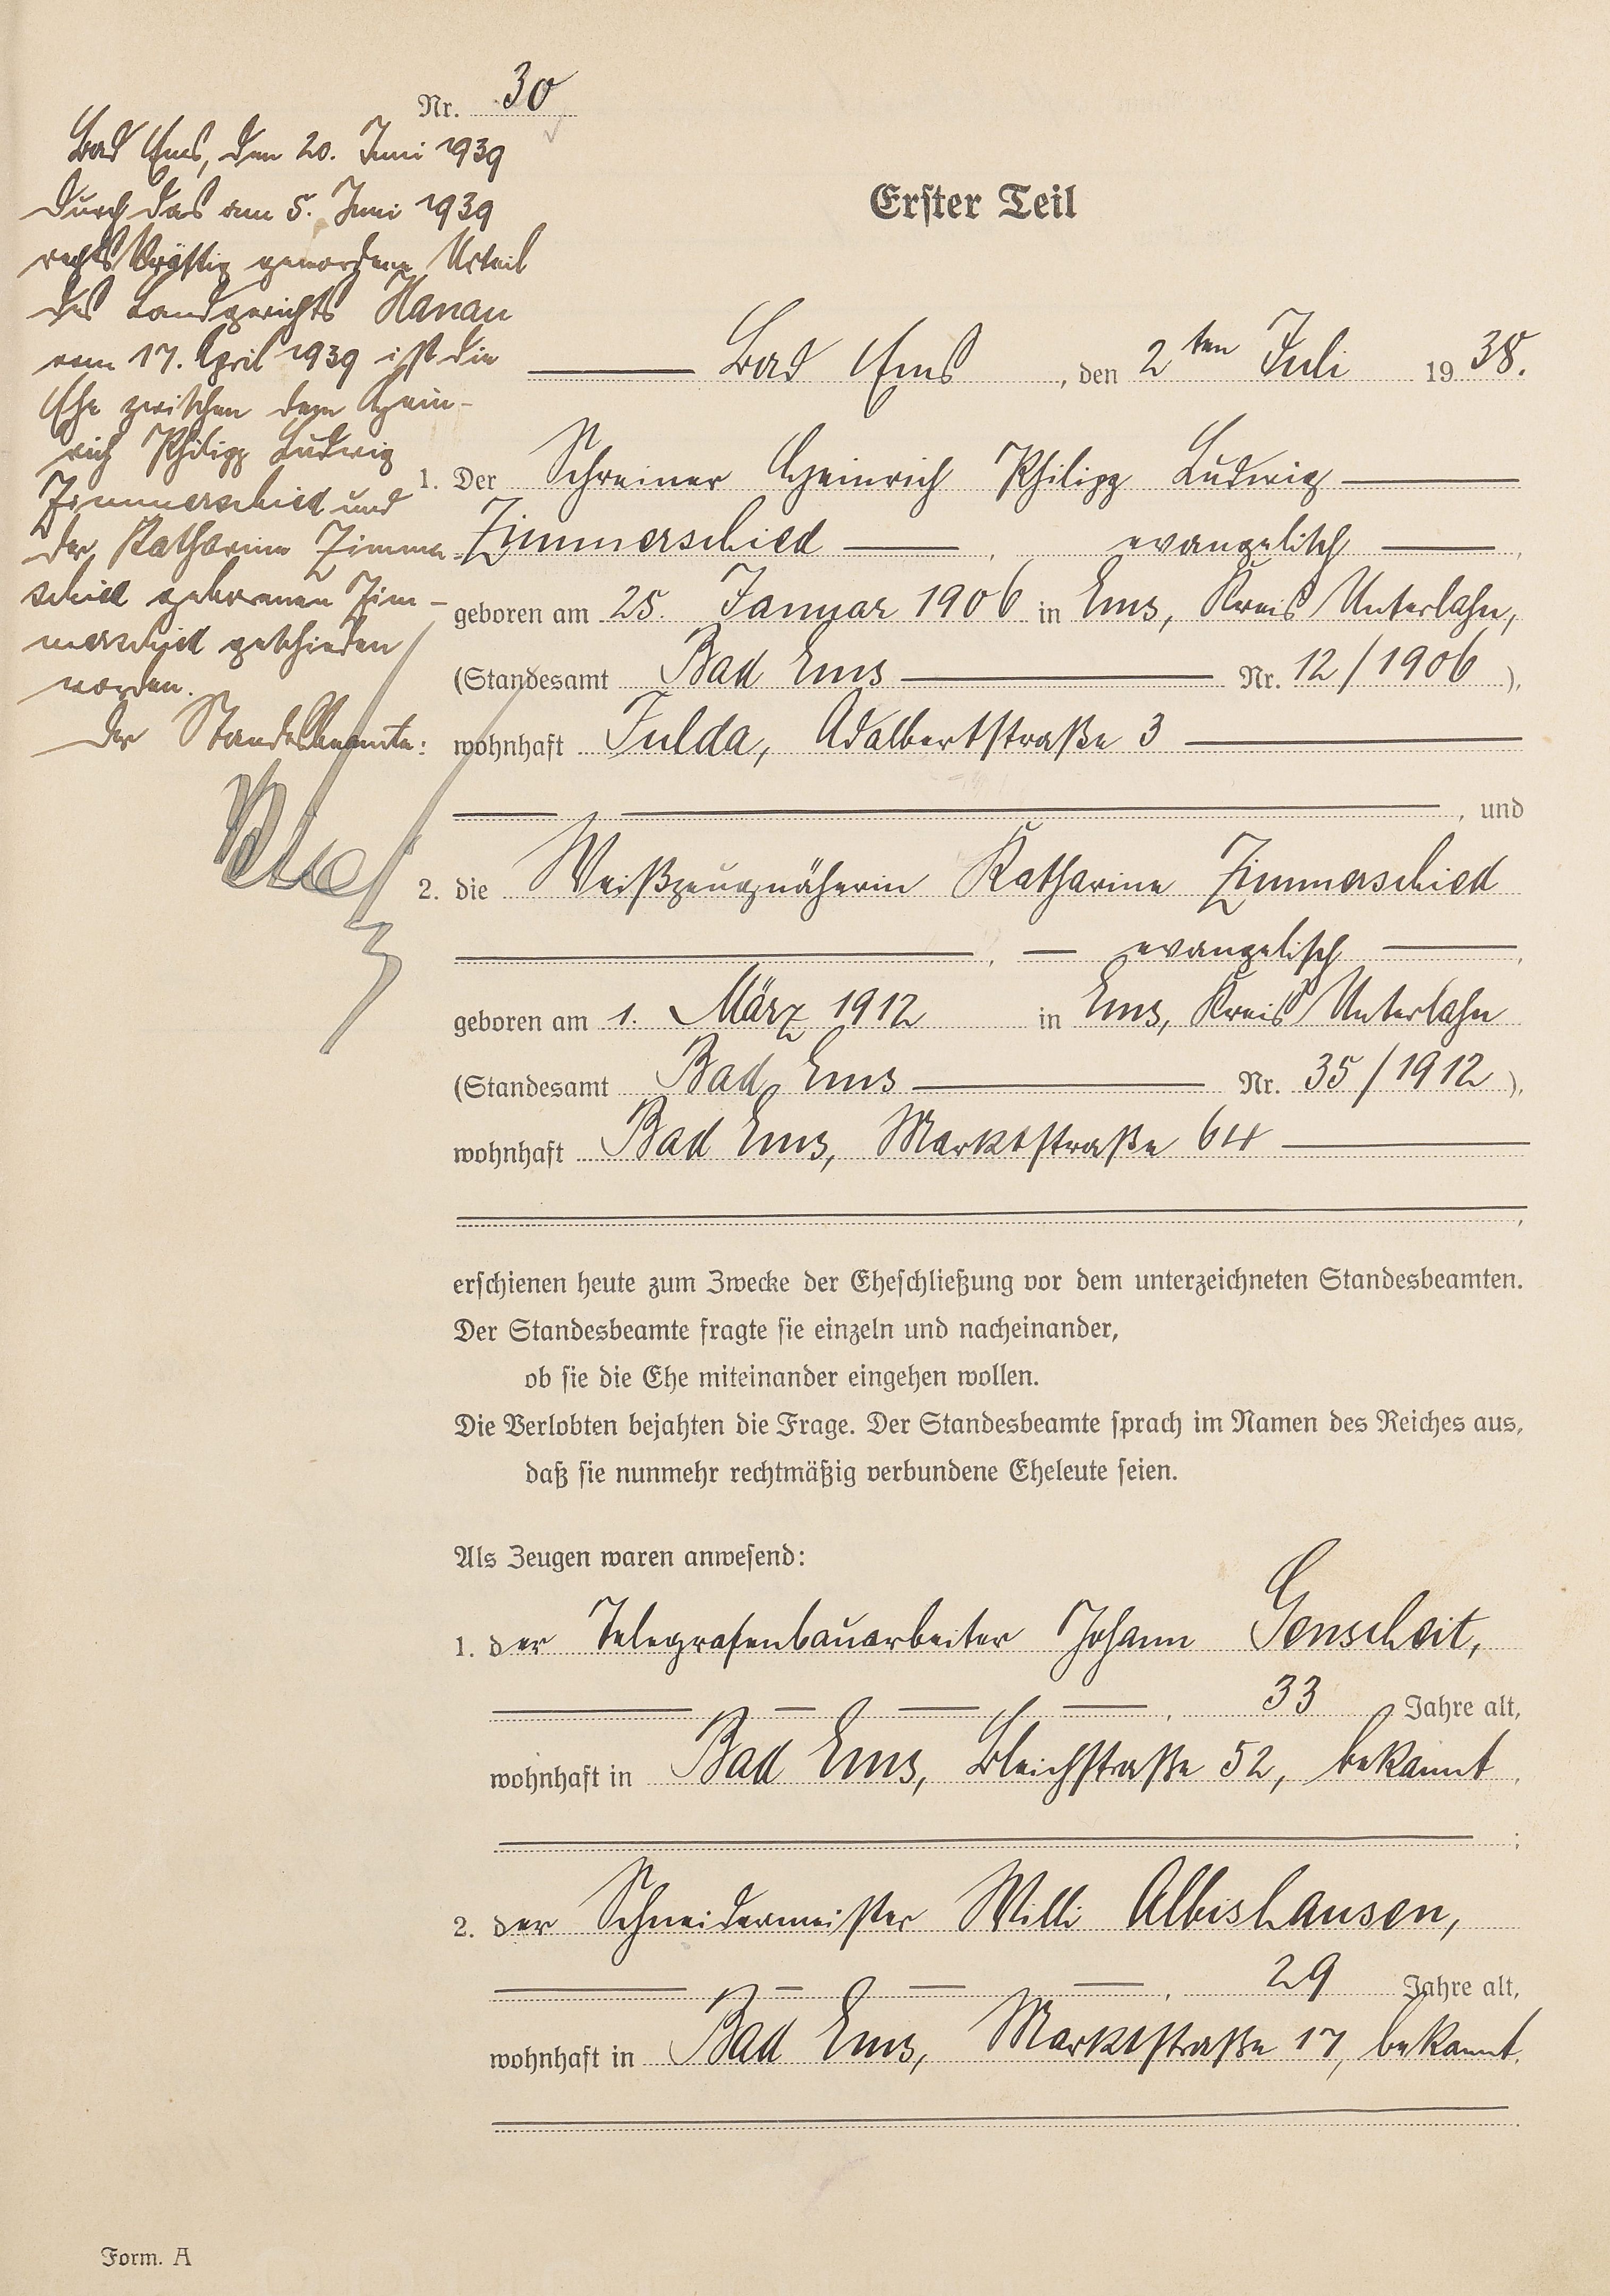 Nr. 30
Bad Ems, den 20. Juni 1939
Durch das am 5. Juni 1939
rechtskräftig gewordene Urteil
des Landgerichts Hanau
vom 17. April 1939 ist die
Ehe zwischen dem Hein-
rich Philipp Ludwig
Zimmerschied und
der Katharina Zimmer
schied geborenen Zim-
merschied geschieden
worden.
Der Standesbeamte:
Erster Teil
Bad Ems, den 2ten Juli 1938.
1. Der Schreiner Heinrich Philipp Ludwig
Zimmerschied, evangelisch,
geboren am 25. Januar 1906 in Ems, Kreis Unterlahn,
(Standesamt Bad Ems Nr. 12/1906),
wohnhaft Fulda, Adalbertstraße 3
, und
2. die Weißzeugnäherin Katharina Zimmerschied
, evangelisch,
geboren am 1. März 1912 in Ems, Kreis Unterlahn
(Standesamt Bad Ems Nr. 35/1912),
wohnhaft Bad Ems, Marktstraße 64
,
erschienen heute zum Zwecke der Eheschließung vor dem unterzeichneten Standesbeamten.
Der Standesbeamte fragte sie einzeln und nacheinander,
ob sie die Ehe miteinander eingehen wollen.
Die Verlobten bejahten die Frage. Der Standesbeamte sprach im Namen des Reiches aus,
daß sie nunmehr rechtmäßig verbundene Eheleute seien.
Als Zeugen waren anwesend:
1. der Telegrafenbauarbeiter Johann Genscheit,
, 33 Jahre alt,
wohnhaft in Bad Ems, Bleichstraße 52, bekannt,
;
2. der Schneidermeister Willi Albishausen,
, 29 Jahre alt,
wohnhaft in Bad Ems, Marktstraße 17, bekannt.
Form. A